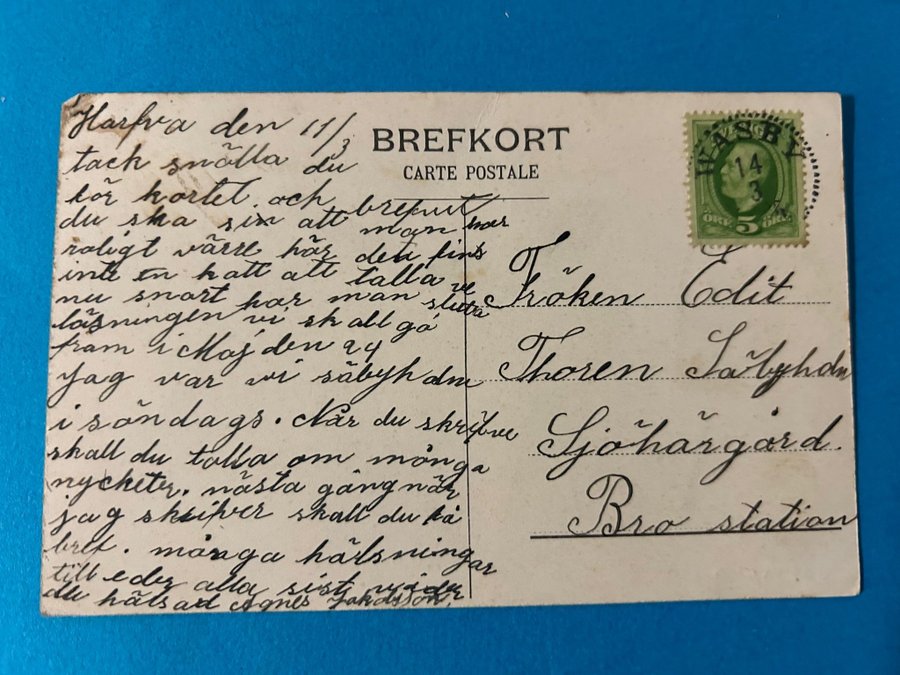 Harfva den 11/3
tack snälla du
för kortet. och brefvet
du ska sin att man har
roligt värre här det fins
inte en katt att talla ve
nu snart har man sluta
läsningen vi skall gå
fram i Maj den 24
jag var vi säbyhdm
i söndags. När du skrifve
skall du talla om många
nycketer. nästa gång när
jag skrifver skall du få
bref. många hälsningar
till eder alla sist
du hälsad Agnes
BREFKORT
CARTE POSTALE
WÄSBY
14
3
5
ÖRE ÖRE
Fröken Edit
Thoren Säbyhdm
Sjöhärgård.
Bro station